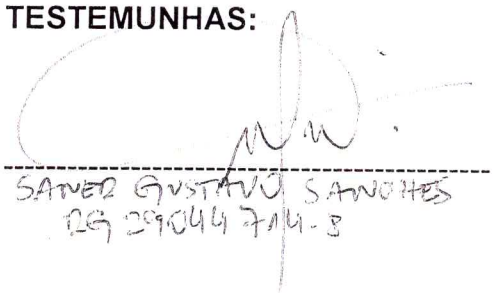 TESTEMUNHAS:
SANER GUSTAVO SANCHES
RG 29044714-8